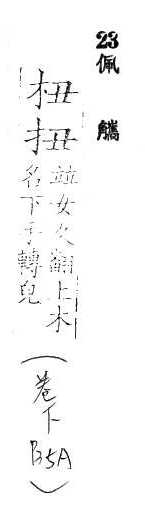 23
佩觿
杻
扭
並女久翻上木
名下手轉皃
(卷下 B5A)